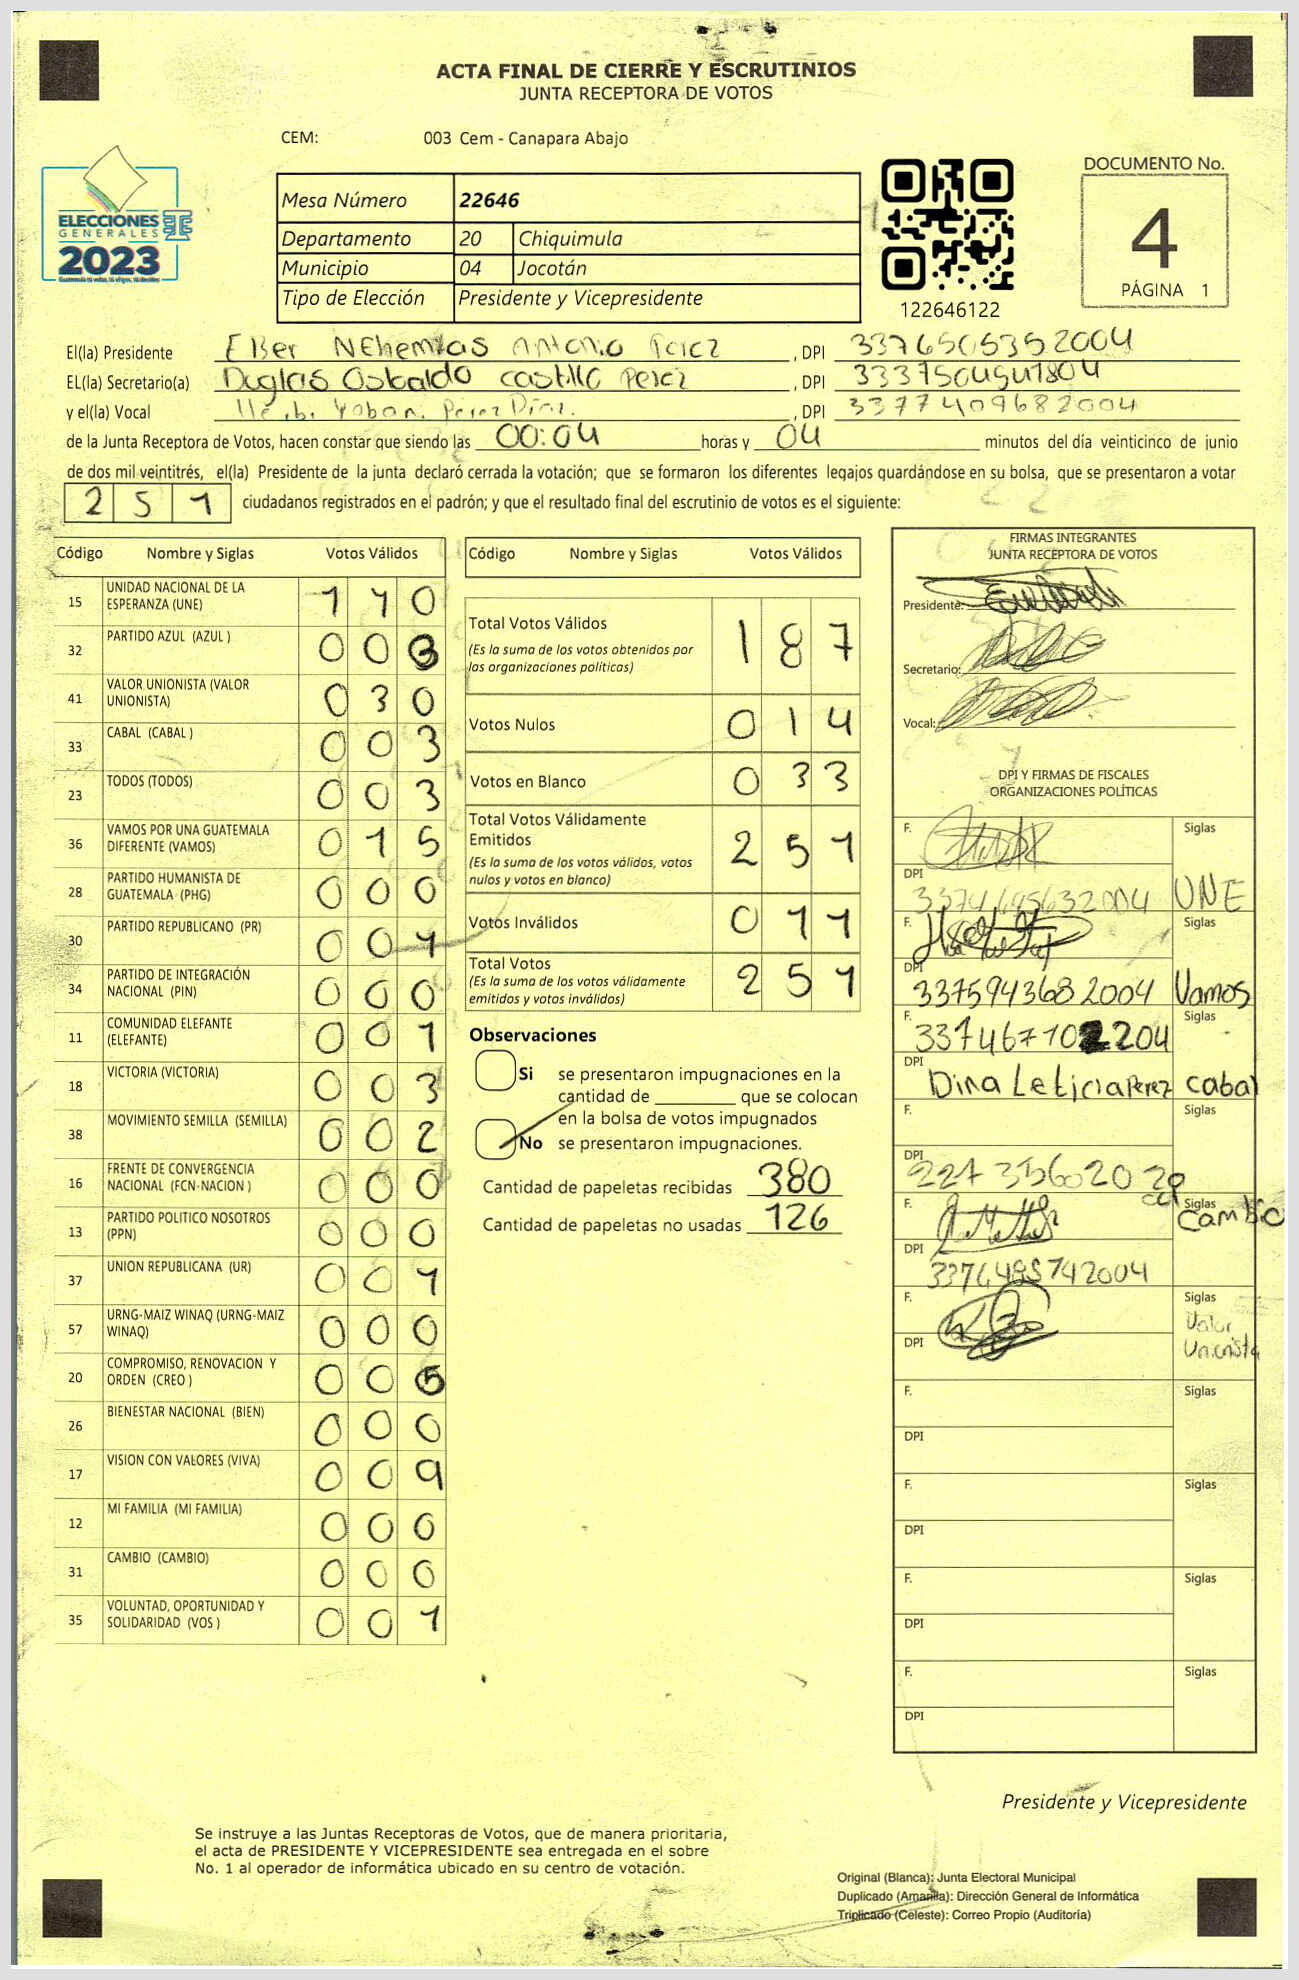 ACTA FINAL DE CIERRE Y ESCRUTINIOS
JUNTA RECEPTORA DE VOTOS
CEM: 003 Cem - Canapara Abajo
ELECCIONES
GENERALES
2023
Mesa Número 22646
Departamento 20 Chiquimula
Municipio 04 Jocotán
Tipo de Elección Presidente y Vicepresidente
122646122
DOCUMENTO No.
4
PÁGINA 1
El(la) Presidente Elser NEhemías Antonio Perez , DPI 3376505352004
EL(la) Secretario(a) Duglas Osbaldo Castillo Perez , DPI
y el(la) Vocal Perez Díaz. , DPI 3377409682004
de la Junta Receptora de Votos, hacen constar que siendo las 00:04 horas y 04 minutos del día veinticinco de junio
de dos mil veintitrés, el(la) Presidente de la junta declaró cerrada la votación; que se formaron los diferentes legajos guardándose en su bolsa, que se presentaron a votar
2 5 1 ciudadanos registrados en el padrón; y que el resultado final del escrutinio de votos es el siguiente:
Código Nombre y Siglas Votos Válidos
15 UNIDAD NACIONAL DE LA ESPERANZA (UNE) 1 1 0
32 PARTIDO AZUL (AZUL ) 0 0 3
41 VALOR UNIONISTA (VALOR UNIONISTA) 0 3 0
33 CABAL (CABAL ) 0 0 3
23 TODOS (TODOS) 0 0 3
36 VAMOS POR UNA GUATEMALA DIFERENTE (VAMOS) 0 1 5
28 PARTIDO HUMANISTA DE GUATEMALA (PHG) 0 0 0
30 PARTIDO REPUBLICANO (PR) 0 0 1
34 PARTIDO DE INTEGRACIÓN NACIONAL (PIN) 0 0 0
11 COMUNIDAD ELEFANTE (ELEFANTE) 0 0 1
18 VICTORIA (VICTORIA) 0 0 3
38 MOVIMIENTO SEMILLA (SEMILLA) 0 0 2
16 FRENTE DE CONVERGENCIA NACIONAL (FCN-NACION ) 0 0 0
13 PARTIDO POLITICO NOSOTROS (PPN) 0 0 0
37 UNION REPUBLICANA (UR) 0 0 1
57 URNG-MAIZ WINAQ (URNG-MAIZ WINAQ) 0 0 0
20 COMPROMISO, RENOVACION Y ORDEN (CREO ) 0 0 5
26 BIENESTAR NACIONAL (BIEN) 0 0 0
17 VISION CON VALORES (VIVA) 0 0 9
12 MI FAMILIA (MI FAMILIA) 0 0 0
31 CAMBIO (CAMBIO) 0 0 0
35 VOLUNTAD, OPORTUNIDAD Y SOLIDARIDAD (VOS ) 0 0 1
Código Nombre y Siglas Votos Válidos
Total Votos Válidos 1 8 7
(Es la suma de los votos obtenidos por
las organizaciones políticas)
Votos Nulos 0 1 4
Votos en Blanco 0 3 3
Total Votos Válidamente
Emitidos 2 5 1
(Es la suma de los votos válidos, votos
nulos y votos en blanco)
Votos Inválidos 0 1 1
Total Votos 2 5 1
(Es la suma de los votos válidamente
emitidos y votos inválidos)
Observaciones
Si se presentaron impugnaciones en la
cantidad de ________ que se colocan
en la bolsa de votos impugnados
No se presentaron impugnaciones.
Cantidad de papeletas recibidas 380
Cantidad de papeletas no usadas 126
FIRMAS INTEGRANTES
JUNTA RECEPTORA DE VOTOS
Presidente:
Secretario:
Vocal:
DPI Y FIRMAS DE FISCALES
ORGANIZACIONES POLÍTICAS
F. Siglas
DPI UNE
F. Siglas
DPI 3375943682004 Vamos
F. Siglas
DPI Dina Leticia Perez cabal
F. Siglas
DPI
F. Siglas
Cambio
DPI 3376495742004
F. Siglas
Valor
DPI Unionista
F. Siglas
DPI
F. Siglas
DPI
F. Siglas
DPI
F. Siglas
DPI
Presidente y Vicepresidente
Se instruye a las Juntas Receptoras de Votos, que de manera prioritaria,
el acta de PRESIDENTE Y VICEPRESIDENTE sea entregada en el sobre
No. 1 al operador de informática ubicado en su centro de votación.
Original (Blanca): Junta Electoral Municipal
Duplicado (Amarilla): Dirección General de Informática
Triplicado (Celeste): Correo Propio (Auditoría)